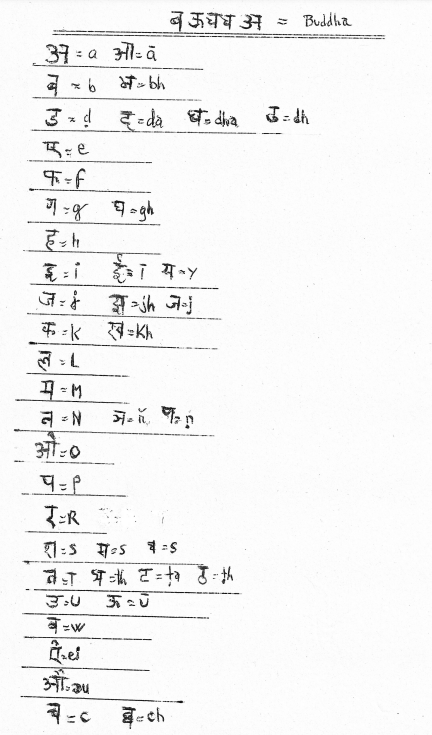 ब ऊ घ घ अ = Buddha
अ = a ओ = ā
ब = b भ = bh
ड = ḍ द = da ध = dha ढ = dh
ए = e
फ = f
ग = g घ = gh
ह = h
इ = i ई = ī य = y
ज = j झ = jh ज = j
क = K ख = Kh
ल = L
म = M
न = N ञ = ñ ण = ṇ
औ = O
प = P
र = R
श = S स = S ष = S
त = T थ = th ट = ṭa ठ = ṭh
उ = U ऊ = Ū
व = w
ऐ = ei
औ = au
च = c छ = ch